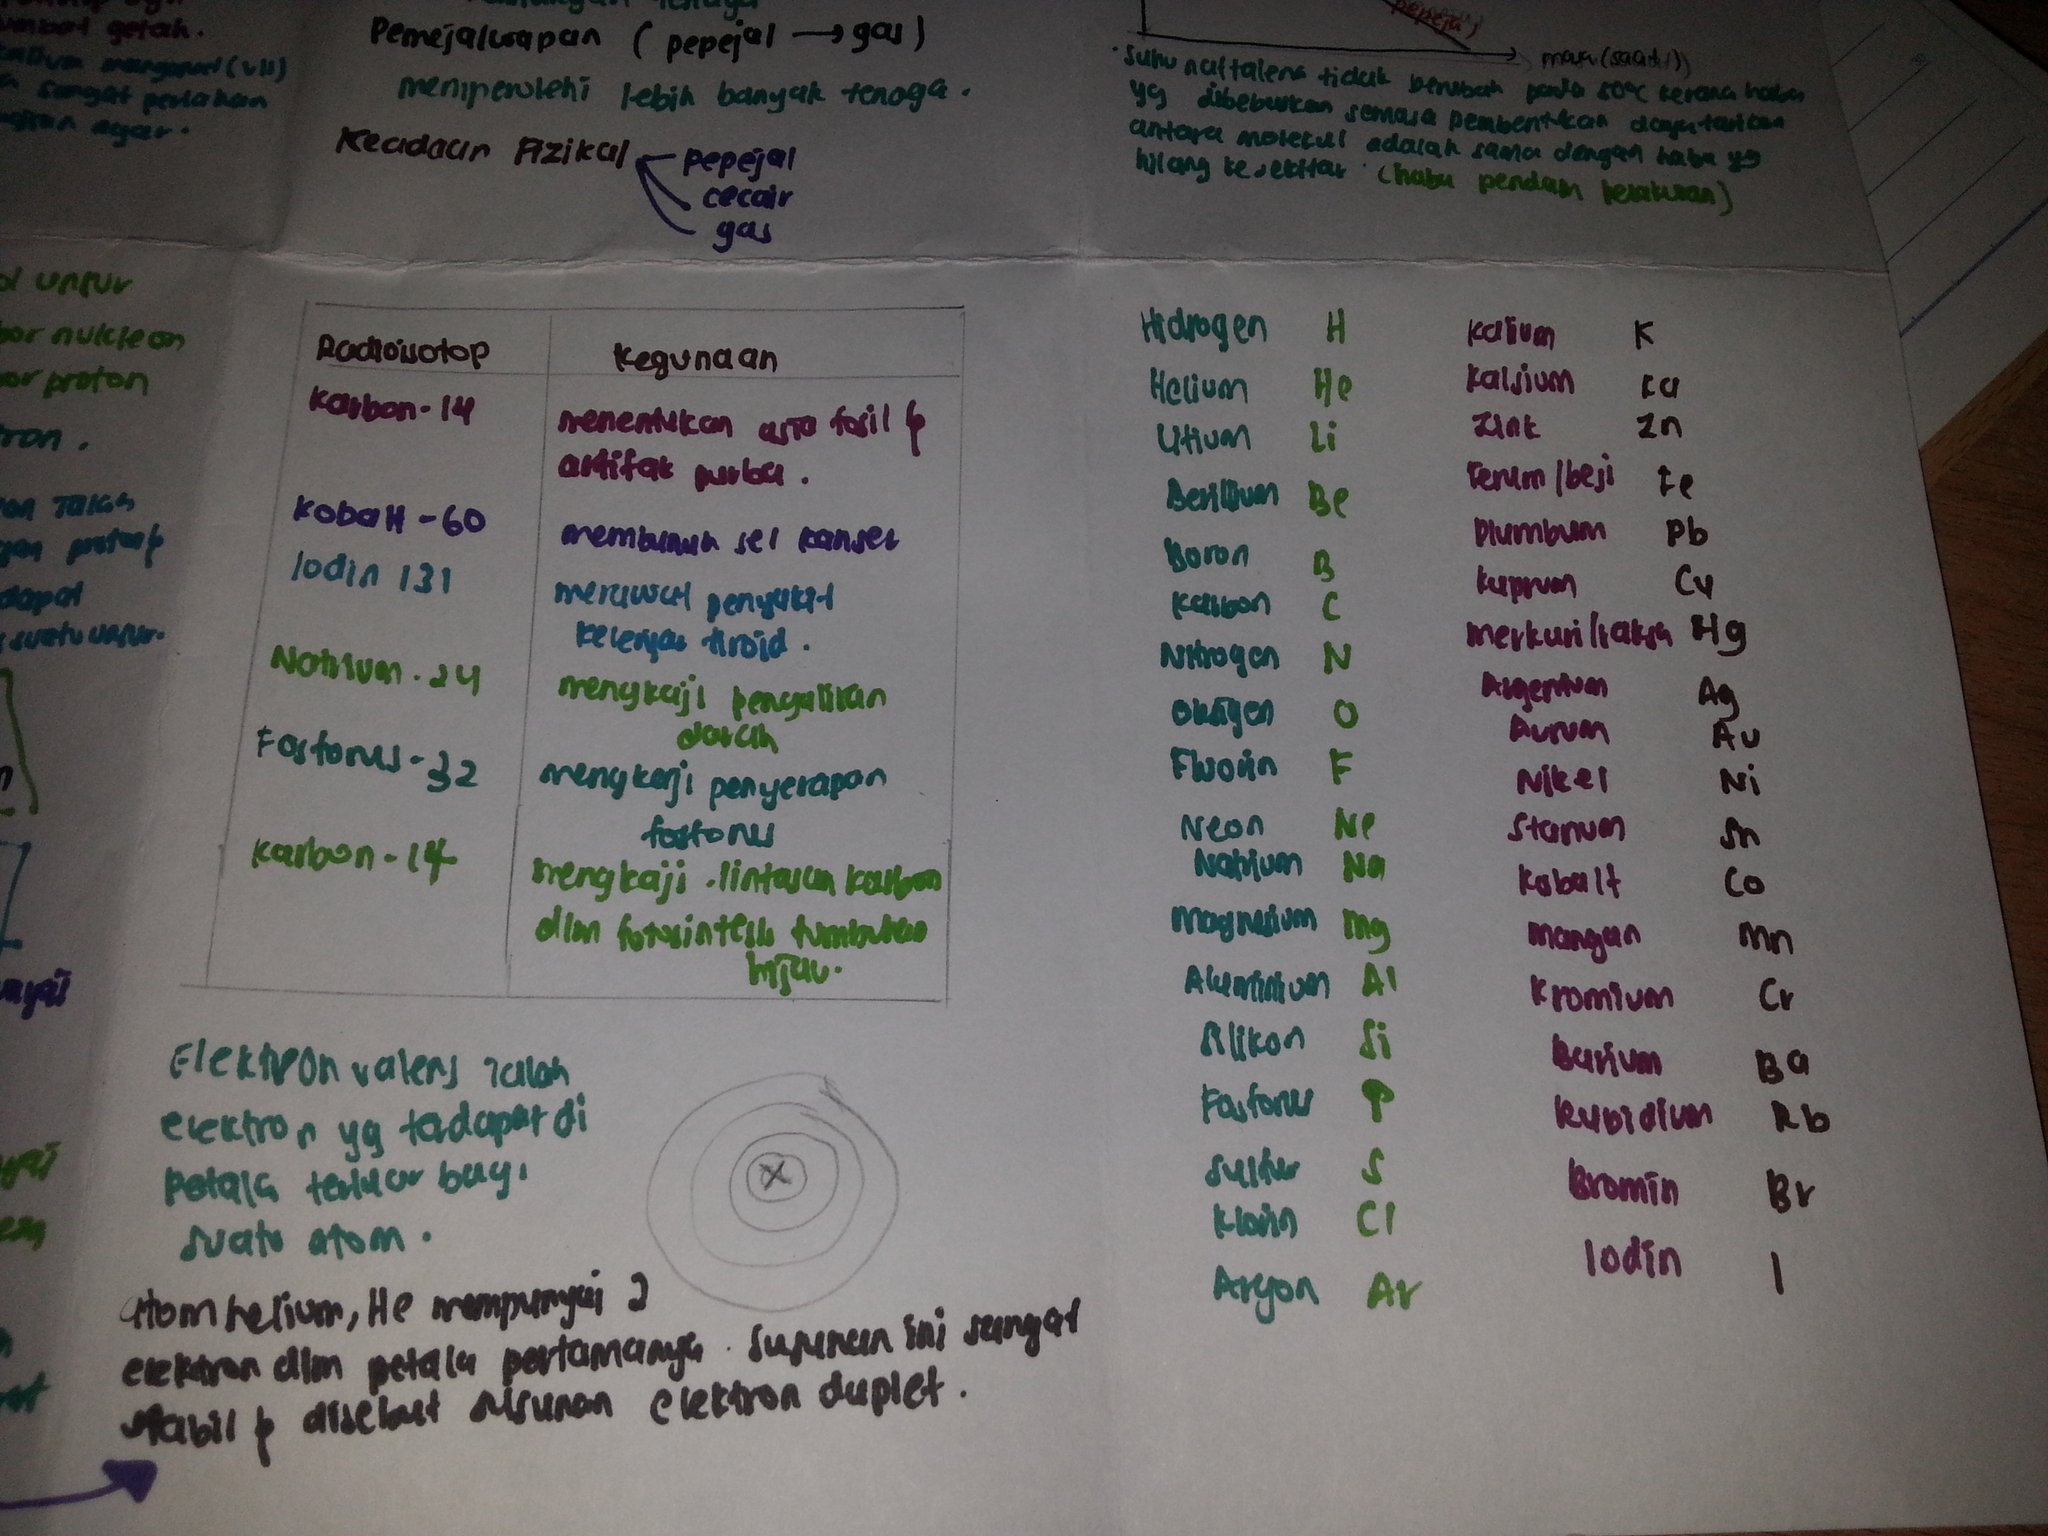 umbat getah.
sangat perlahan
agar.
Pemejalwapan (pepejal → gas)
memperolehi lebih banyak tenaga.
Keadaan Fizikal
pepejal
cecair
gas
pepejal
masa (saat)
suhu naftalena tidak berubah pada 80°C kerana haba
yg dibebaskan semasa pembentukan daya tarikan
antara molekul adalah sama dengan haba yg
hilang ke sekitar. (haba pendam
unsur
nukleon
proton
tron.
dapat
suatu unsur.
Radioisotop Kegunaan
Karbon-14 menentukan usia fosil &
artifak purba.
Kobalt-60 membunuh sel kanser
Iodin 131 merawat penyakit
kelenjar tiroid.
Natrium-24 mengkaji pengaliran
darah
Fosforus-32 mengkaji penyerapan
fosforus
Karbon-14 mengkaji lintasan karbon
dlm fotosintesis tumbuhan
hijau.
Elektron valens ialah
elektron yg terdapat di
petala terluar bagi
suatu atom.
X
Atom helium, He mempunyai 2
elektron dlm petala pertamanya. Susunan ini sangat
stabil & disebut susunan elektron duplet.
Hidrogen H
Helium He
Litium Li
Berilium Be
Boron B
Karbon C
Nitrogen N
Oksigen O
Fluorin F
Neon Ne
Natrium Na
Magnesium Mg
Aluminium Al
Silikon Si
Fosforus P
Sulfur S
Klorin Cl
Argon Ar
Kalium K
Kalsium Ca
Zink Zn
Ferum/besi Fe
Plumbum Pb
Kuprum Cu
Merkuri/raksa Hg
Argentum Ag
Aurum Au
Nikel Ni
Stanum Sn
Kobalt Co
Mangan Mn
Kromium Cr
Barium Ba
Rubidium Rb
Bromin Br
Iodin I